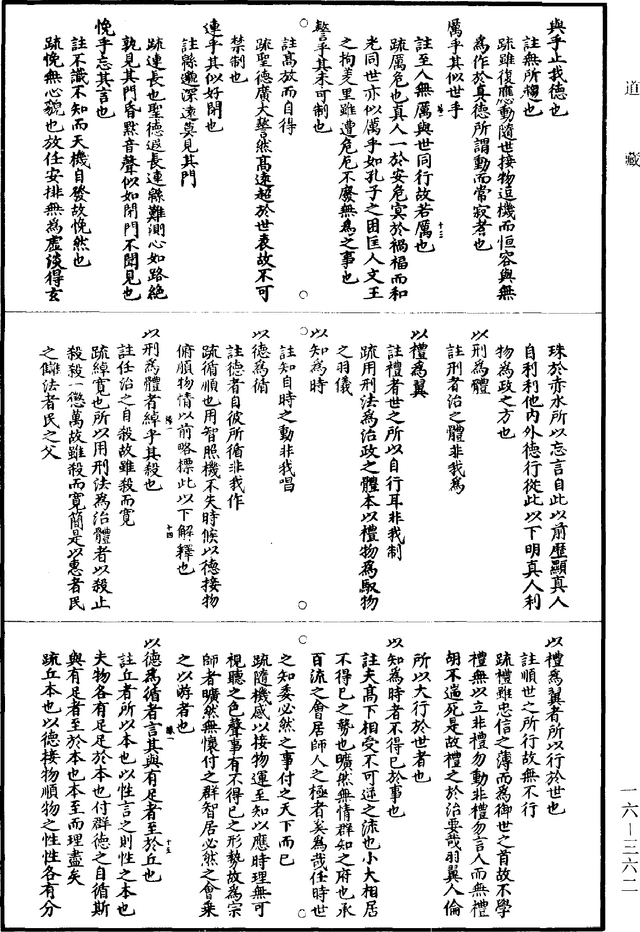 道藏
與乎止我德也
註無所趨也
疏雖復應動隨世接物逗機而恒容與無
為作於真德所謂動而常寂者也
厲乎其似世乎
註至人無厲與世同行故若厲也
十三
疏厲危也真人一於安危冥於禍福而和
光同世亦似厲乎如孔子之困匡人文王
之拘羑里雖遭危厄不廢無為之事也
謷乎其未可制也
註高放而自得
疏聖德廣大謷然高遠超於世表故不可
禁制也
連乎其似好閉也
註緜邈深遠莫見其門
疏連長也聖德遐長連緜難測心如路絶
孰見其門昏默音聲似如閉門不聞見也
悗乎忘其言也
註不識不知而天機自發故悗然也
疏悗無心貌也放任安排無為虛淡得玄
珠於赤水所以忘言自此以前歷顯真人
自利利他内外德行從此以下明真人利
物為政之方也
以刑為體
註刑者治之體非我為
以禮為翼
註禮者世之所以自行耳非我制
疏用刑法為治政之體本以禮物為馭物
之羽儀
以知為時
註知自時之動非我唱
以德為循
註德者自彼所循非我作
疏循順也用智照機不失時候以德接物
俯順物情以前略標此以下解釋也
十四
以刑為體者綽乎其殺也
註任治之自殺故雖殺而寬
疏綽寬也所以用刑法為治體者以殺止
殺殺一懲萬故雖殺而寬簡是以惠者民
之讎法者民之父
以禮為翼者所以行於世也
註順世之所行故無不行
疏禮雖忠信之薄而為御世之首故不學
禮無以立非禮勿動非禮勿言人而無禮
胡不遄死是故禮之於治要哉羽翼人倫
所以大行於世者也
以知為時者不得已於事也
註夫高下相受不可逆之流也小大相居
不得已之勢也曠然無情群知之府也承
百流之會居師人之極者奚為哉任時世
之知委必然之事付之天下而已
疏隨機感以接物運至知以應時理無可
視聽之色聲事有不得已之形勢故為宗
師者曠然無懷付之群智居必然之會乘
之以游者也
以德為循者言其與有足者至於丘也
十五
註丘者所以本也以性言之則性之本也
夫物各有足足於本也付群德之自循斯
與有足者至於本也本至而理盡矣
疏丘本也以德接物順物之性性各有分
一六—三六二